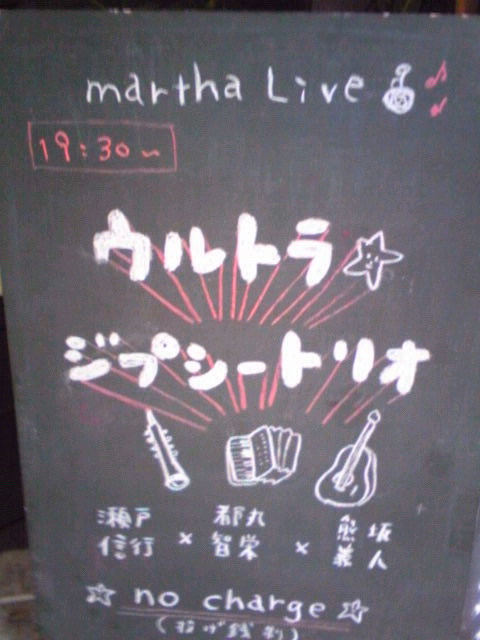 martha Live
19:30〜
ウルトラ
ジプシートリオ
瀬戸 都丸 熊坂
信行 × 智栄 × 義人
☆ no charge ☆
(投げ銭制)